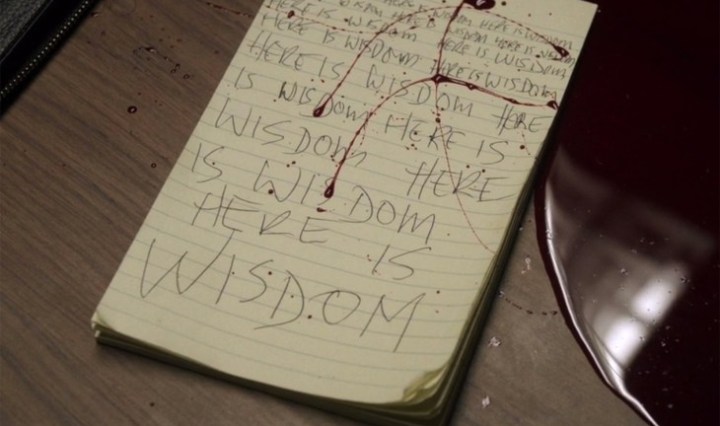 HERE IS WISDOM HERE IS WISDOM
HERE IS WISDOM HERE IS WISDOM
HERE IS WISDOM HERE IS WISDOM
HERE IS WISDOM HERE
IS WISDOM HERE IS
WISDOM HERE
IS WISDOM
HERE IS
WISDOM